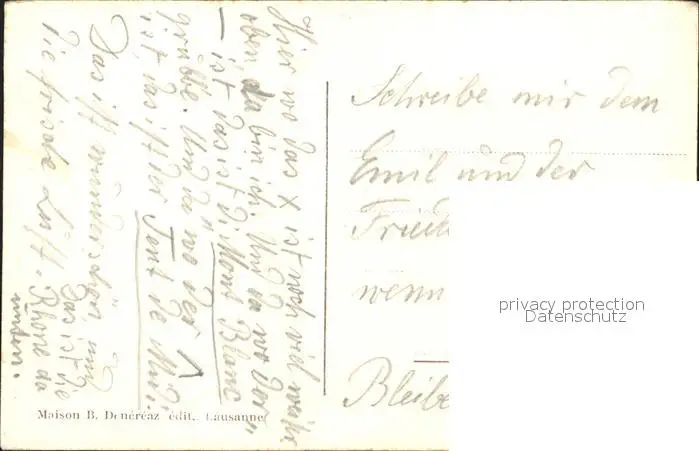 Hier wo das x ist noch viel weiter
oben, da bin ich. Und da wo der
— ist das ist di Mont Blanc
grübbe. Und da wo der ^
ist, das ist der Tent de Midi
Das ist wunderschön, und
die frische Luft. Das ist die
Rhone da
unten.
Schreibe mir dem
Emil und der
Fried
wenn
Bleibe
privacy protection
Datenschutz
Maison B. Denéréaz édit., Lausanne